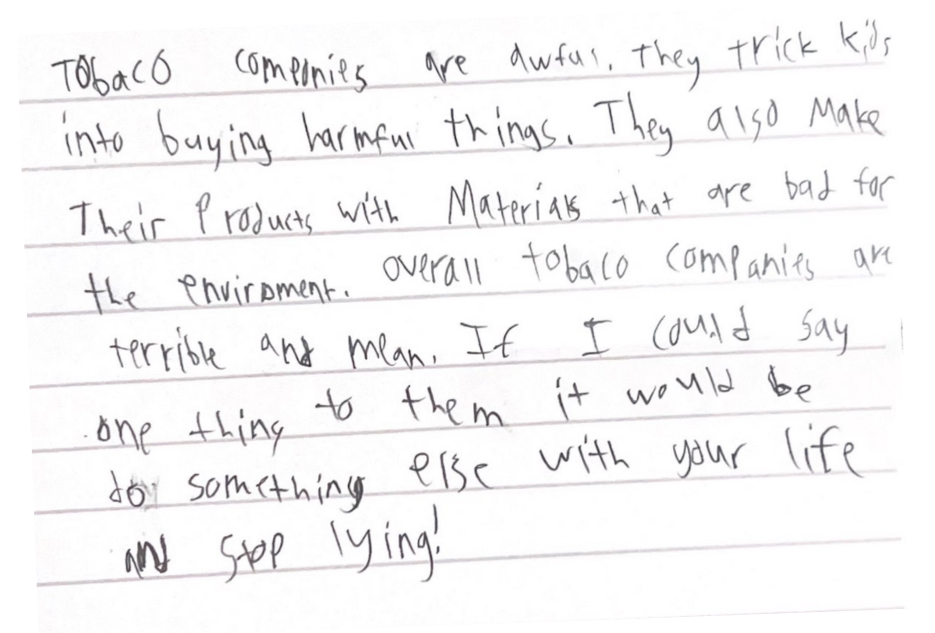 Tobaco companies are awful. They trick kids
into buying harmful things. They also Make
Their Products with Materials that are bad for
the enviroment. overall tobaco companies are
terrible and mean. If I could say
one thing to them it would be
do something else with your life
and stop lying!